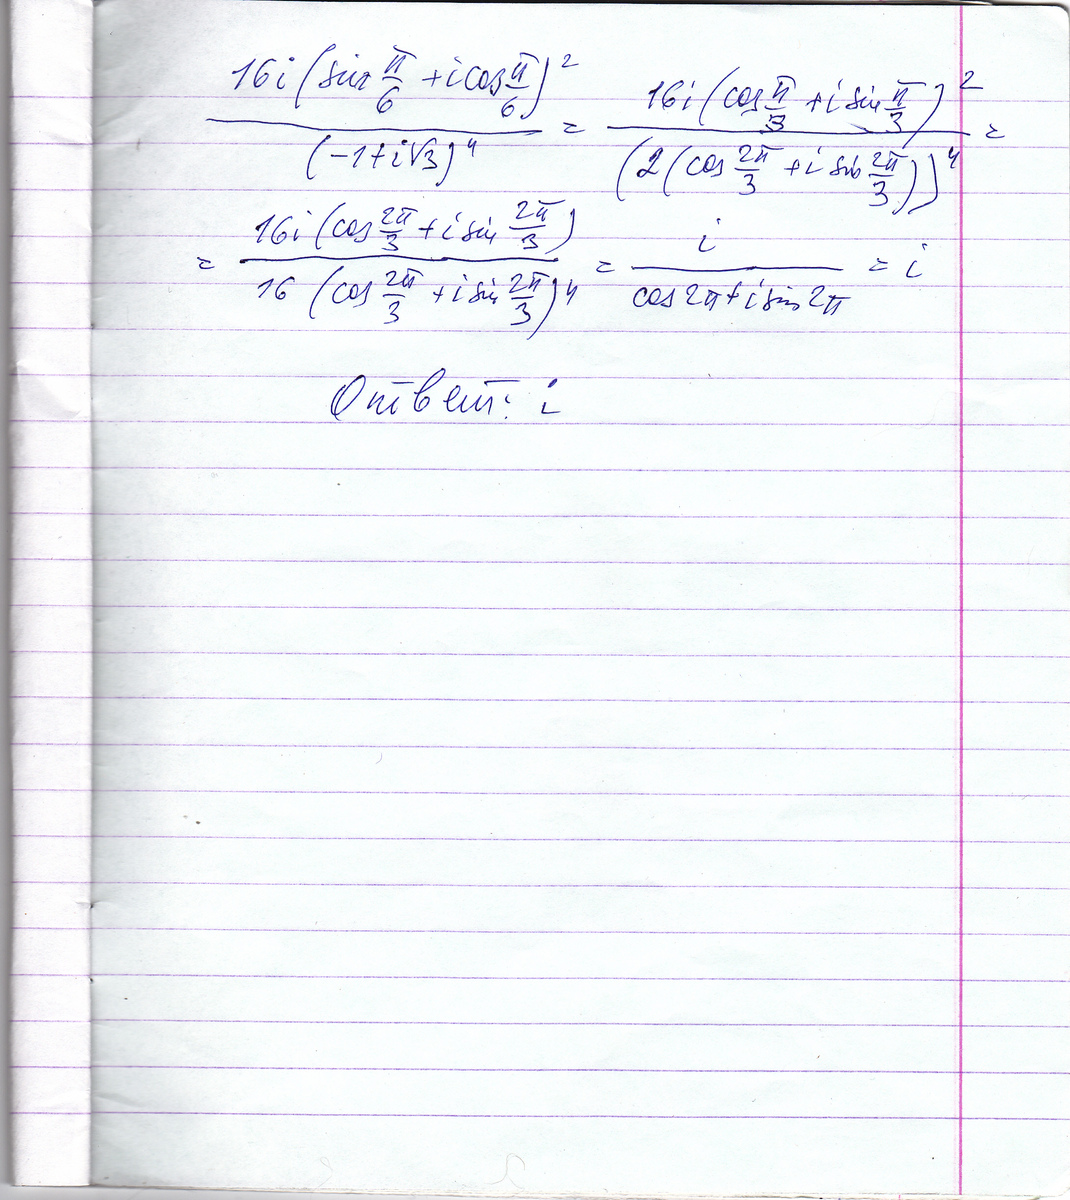 16i(sin π/6 + i cos π/6)² / (-1+i√3)⁴ = 16i(cos π/3 + i sin π/3)² / (2(cos 2π/3 + i sin 2π/3))⁴ =
= 16i(cos 2π/3 + i sin 2π/3) / 16(cos 2π/3 + i sin 2π/3)⁴ = i / cos 2π + i sin 2π = i
Ответ: i